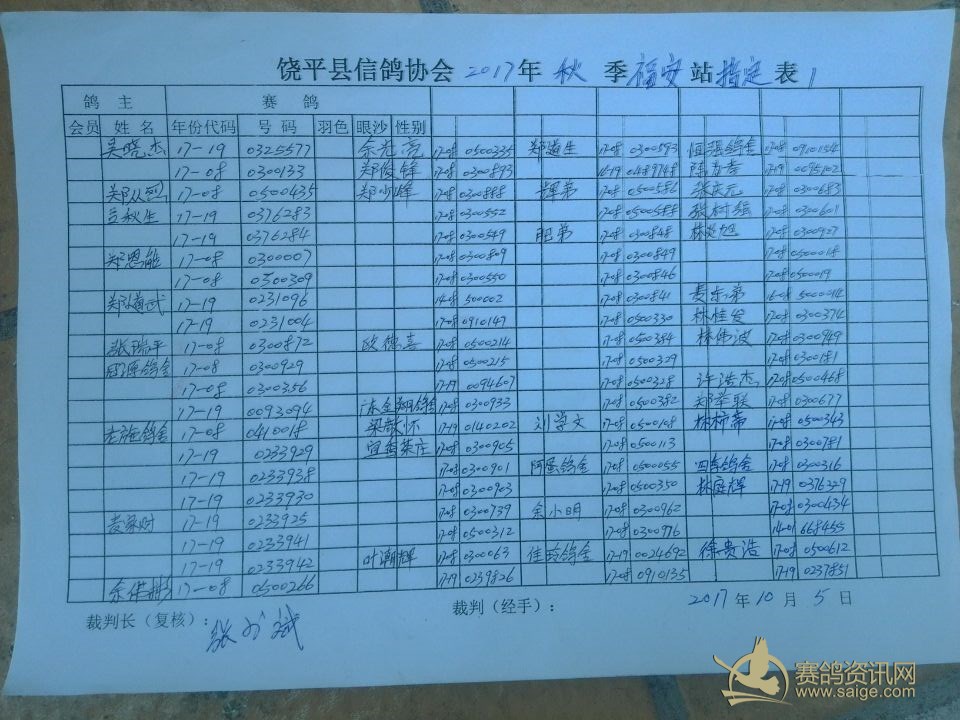 饶平县信鸽协会 2017年 秋 季 福安 站 指定 表 1
鸽 主 赛 鸽
会员 姓 名 年份代码 号 码 羽色 眼沙 性别
吴晓杰 17-19 0325577 余光亮 17-08 0500335 郑道生 17-08 0300593 恒强鸽舍 17-08 0910154
17-08 0300133 郑俊锋 17-08 0300893 16-19 0489748 陈喜杏 17-19 0095102
17-08 0500435 郑少峰 17-08 0300888 辉弟 17-08 0500586 张庆元 17-08 0300683
秋生 17-19 0376283 17-08 0300552 17-08 0500588 张树强 17-08 0300601
17-19 0376284 17-08 0300549 肥弟 17-08 0300848 17-08 0300927
郑恩能 17-08 0300007 17-08 0300809 17-08 0300849 17-08 0500018
17-08 0300309 17-08 0300550 17-08 0300846 17-08 0500019
17-19 0231096 14-08 500002 17-08 0300841 麦乐弟 16-08
17-19 0231004 17-08 0910149 17-08 0500330 林佳发 17-08 0300374
张瑞平 17-08 0300872 欧德喜 17-08 0500214 17-08 0500384 林伟波 17-08 0300949
17-08 0300929 17-08 0500215 17-08 0500329 17-08 0300181
17-08 0300356 17-19 0094607 17-08 0500328 许浩杰 17-08 0500468
17-19 0093094 陈金翔鸽舍 17-08 0300933 17-08 0500382 郑举联 17-08 0300677
17-08 0410018 17-19 0140202 刘学文 17-08 0500108 17-08 0500343
17-19 0233929 宜香茶庄 17-08 0300905 17-08 0500113 17-08 0300781
17-19 0233938 17-08 0300901 阿蛋鸽舍 17-08 0500055 四季鸽舍 17-08 0300316
17-19 0233930 17-08 0300903 17-08 0500350 林庭辉 17-19 0376329
17-19 0233925 17-08 0300739 余小明 17-08 0300962 17-08 0300434
17-19 0233941 17-08 0500312 17-08 0300976 14-01 668455
17-19 0233942 叶潮辉 17-08 0300063 佳玲鸽舍 17-19 0024692 徐贵浩 17-08 0500612
17-08 0500266 17-19 0239826 17-08 0910135 17-19 0237851
裁判长（复核）： 裁判（经手）： 2017年 10 月 5 日
赛鸽资讯网
www.saige.com